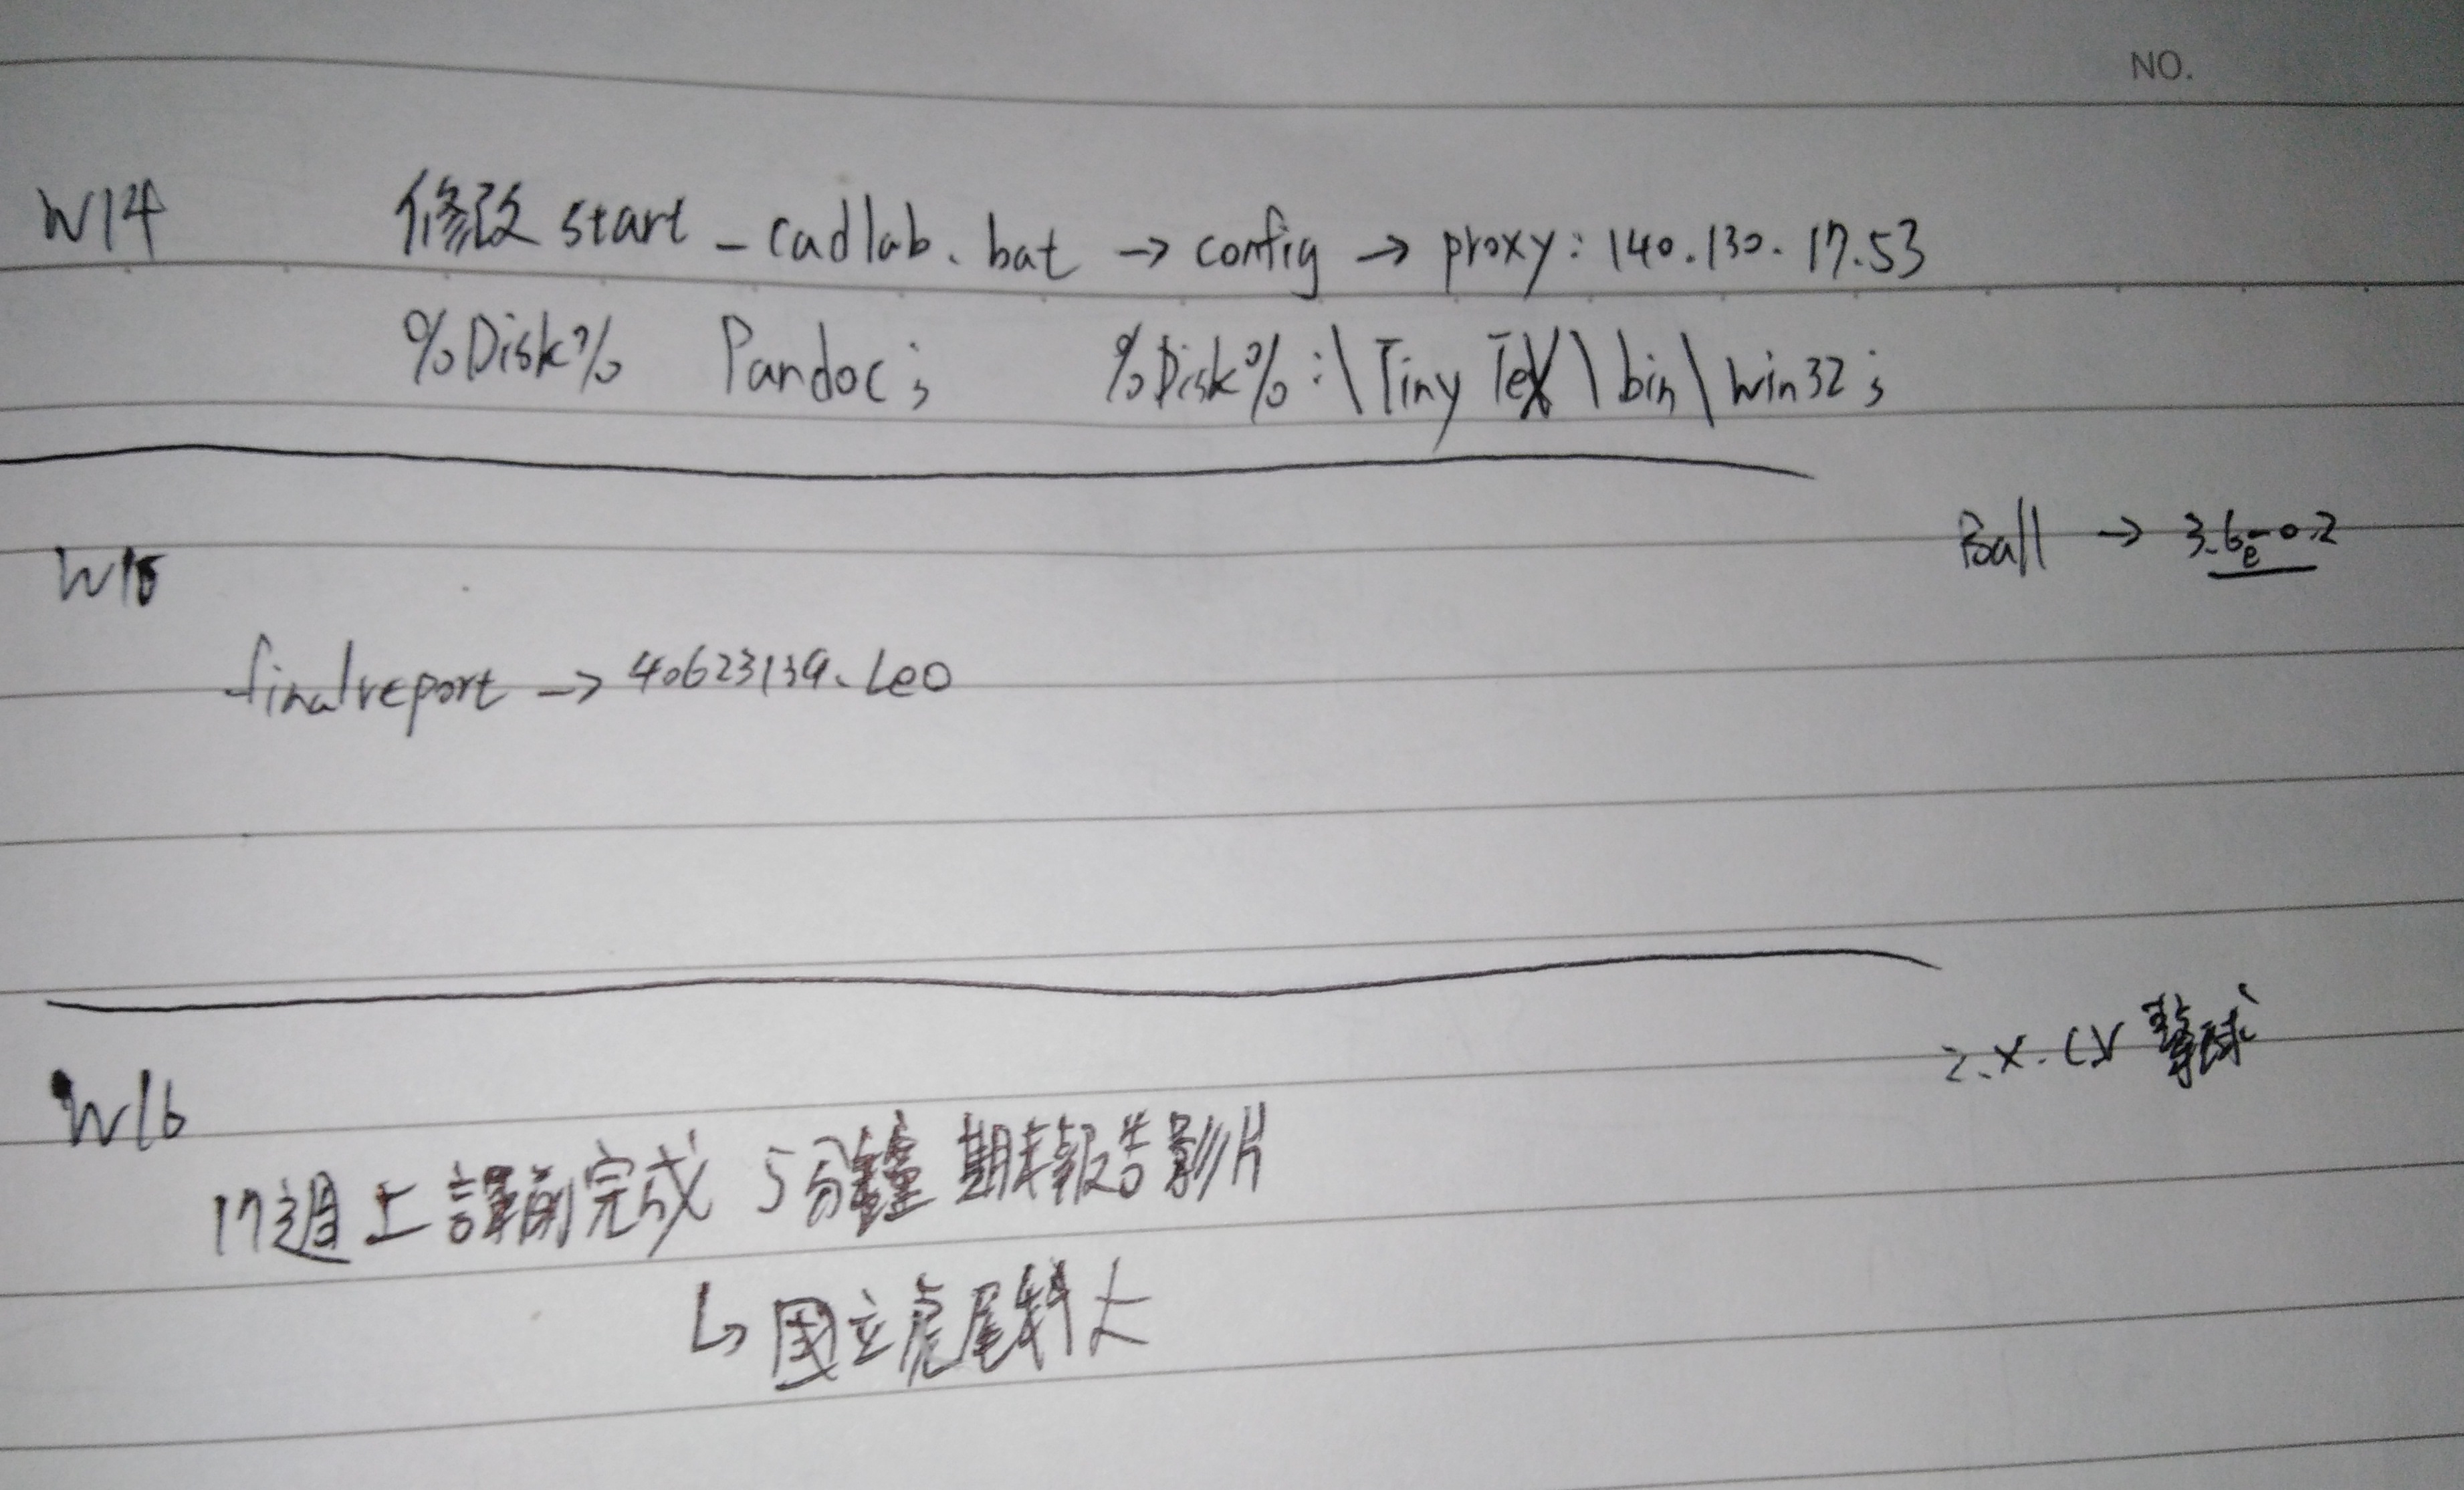 NO.
W14 修改 start_cadlab.bat → config → proxy: 140.130.17.53
%Disk% Pandoc; %Disk%:\TinyTeX\bin\win32;
Ball → 3.6e-0.2
W15
finalreport → 40623139.Leo
W16
17週上課前完成 5分鐘期末報告影片
↳ 國立虎尾科大